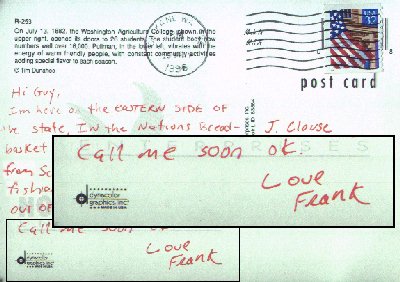 R-253
On July 13, 1892, the Washington Agriculture College (shown in the
upper right) opened its doors to 26 students. The student body now
numbers well over 16,000. Pullman, in the lower left, vibrates with the
energy of warm friendly people, with constant community activities
adding special flavor to each season.
© Tim Dunahoo
1996
USA
post card
Hi Guy,
Im here on the EASTERN SIDE OF
he state, IN the Nations Bread-
basket
from
fishing
out OF
J. Clouse
Call me soon ok.
Love
Frank
dynacolor
graphics, inc.
MADE IN USA
Call me soon ok
Love
Frank
dynacolor
graphics, inc.